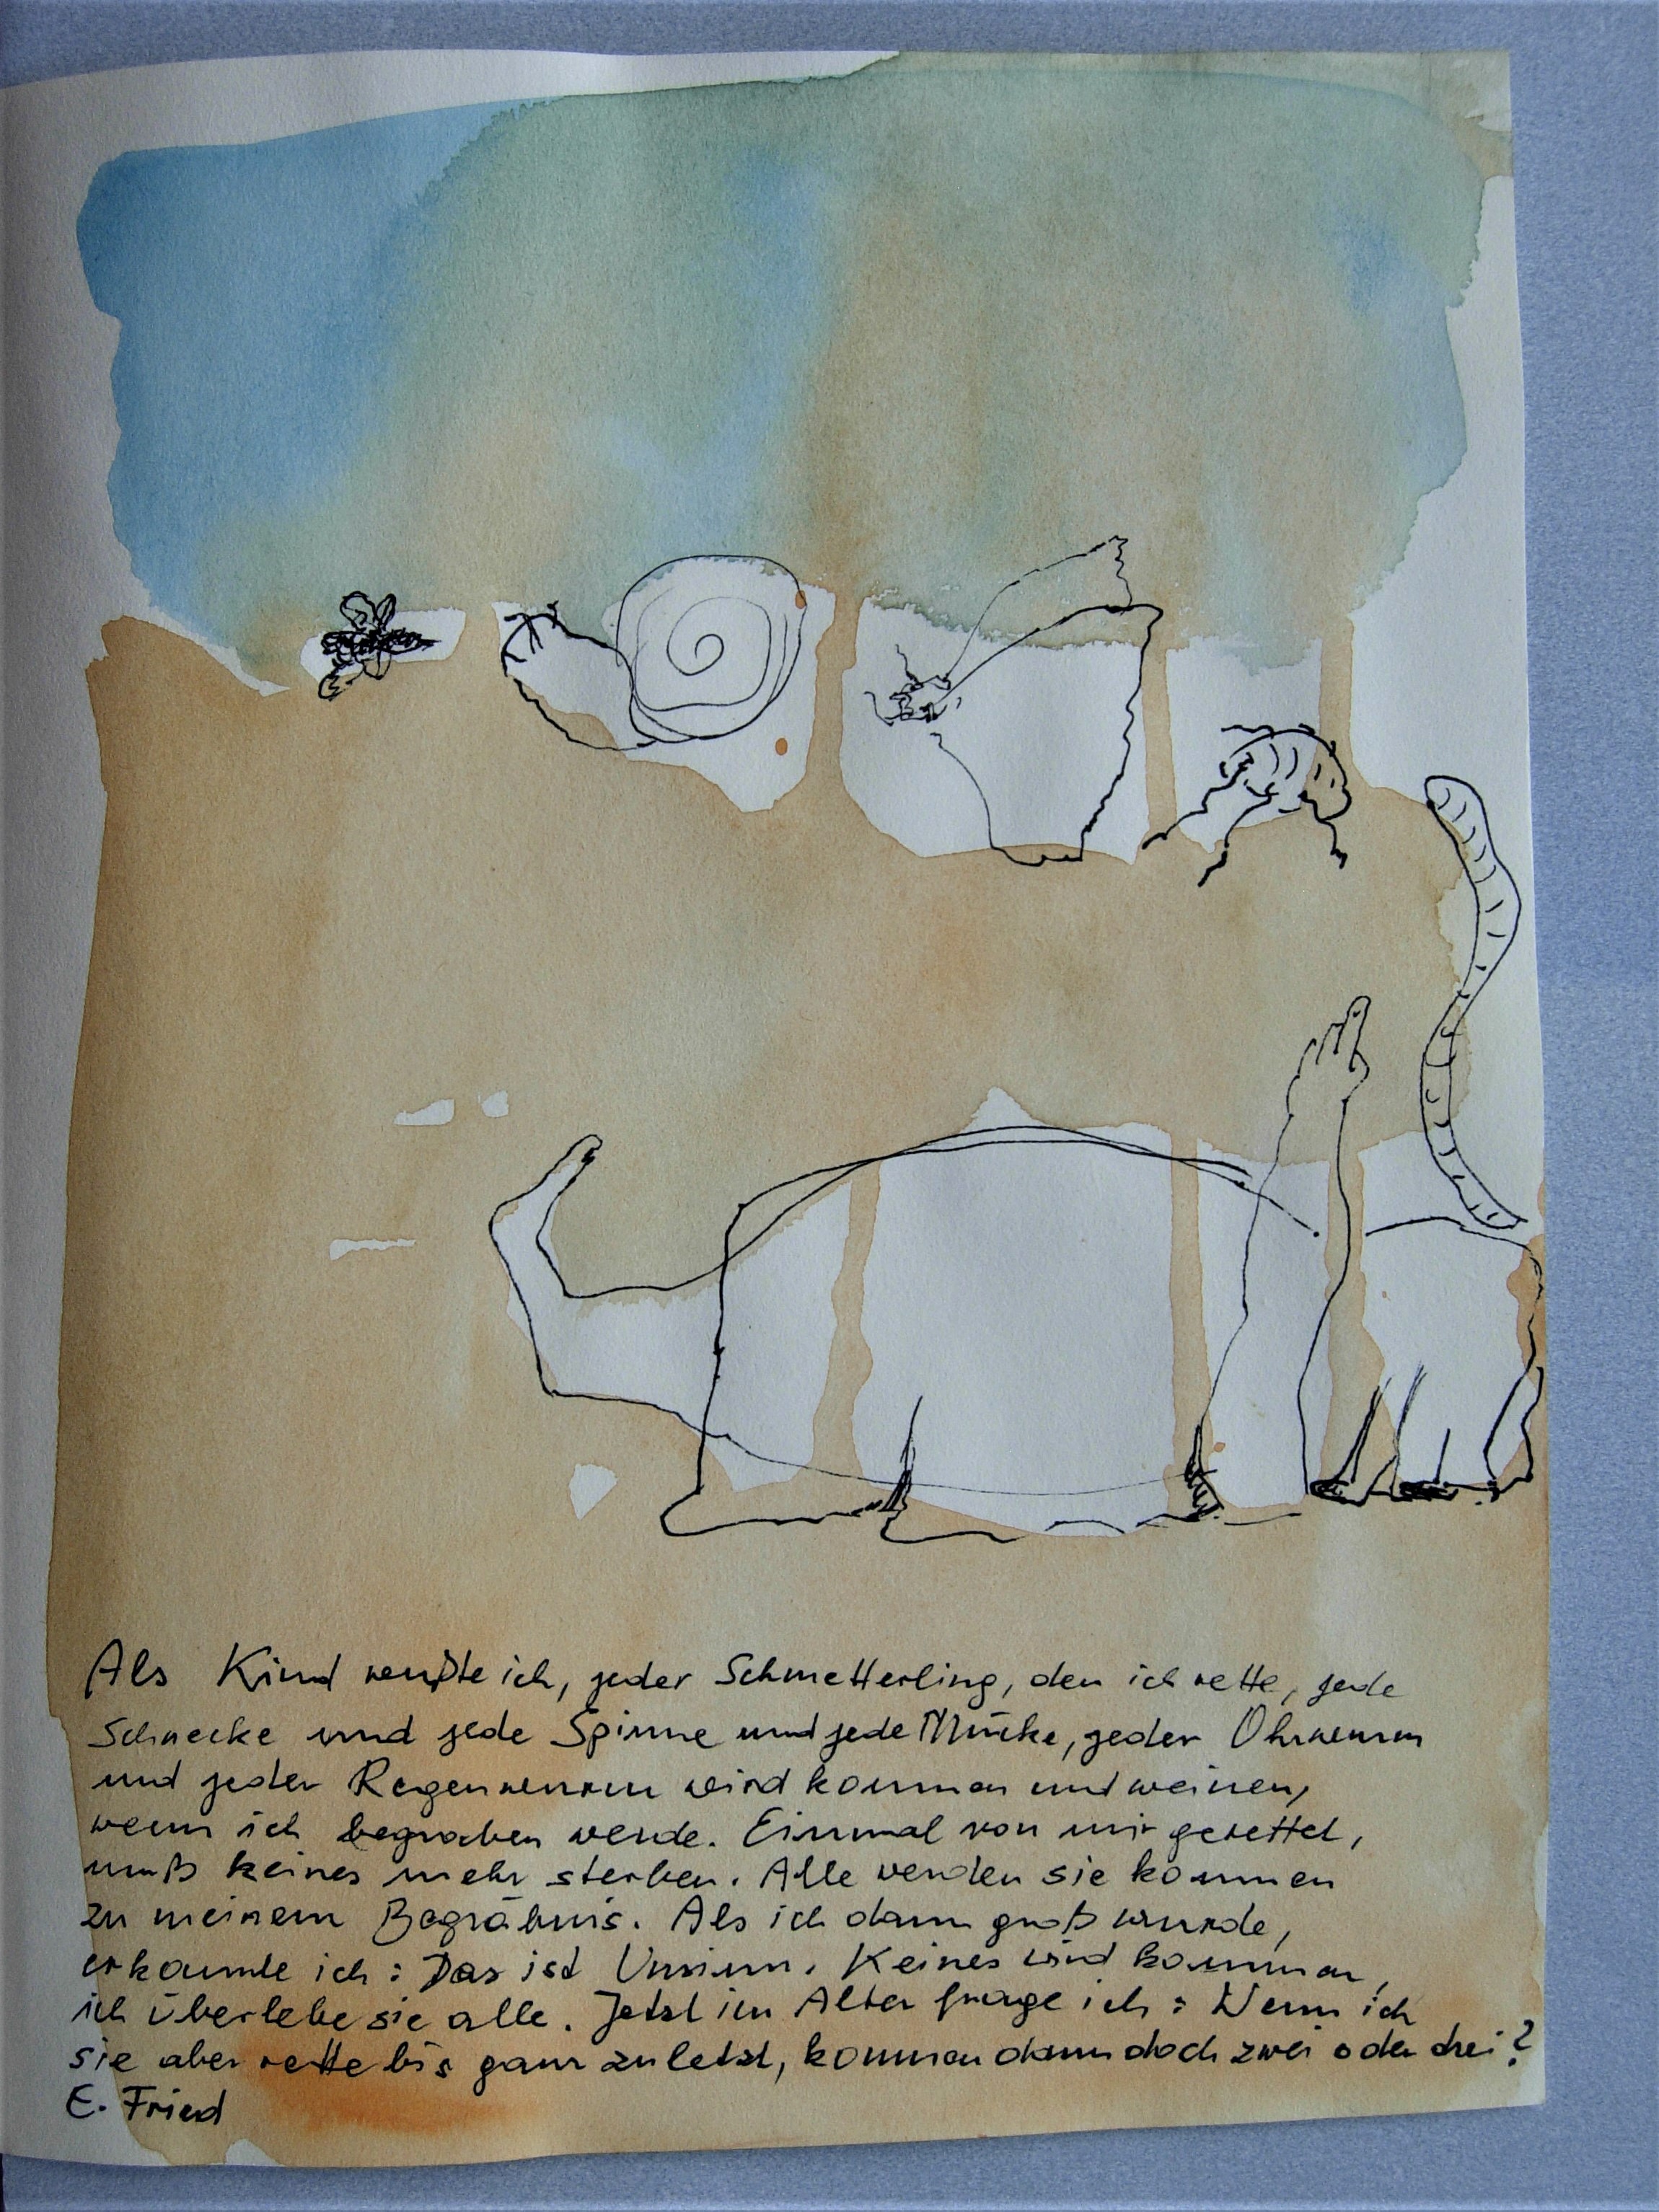 Als Kind wußte ich, jeder Schmetterling, den ich rette, jede
Schnecke und jede Spinne und jede Mücke, jeder Ohrwurm
und jeder Regenwurm wird kommen und weinen,
wenn ich begraben werde. Einmal von mir gerettet,
muß keines mehr sterben. Alle werden sie kommen
zu meinem Begräbnis. Als ich dann groß wurde,
erkannte ich: Das ist Unsinn. Keines wird kommen,
ich überlebe sie alle. Jetzt im Alter frage ich: Wenn ich
sie aber rette bis ganz zuletzt, kommen dann doch zwei oder drei?
E. Fried